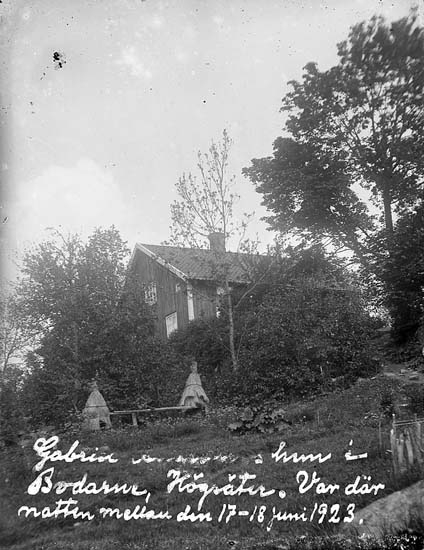 Gabriel hem i
Bodarne, Högsäter. Var där
natten mellan den 17-18 juni 1923.